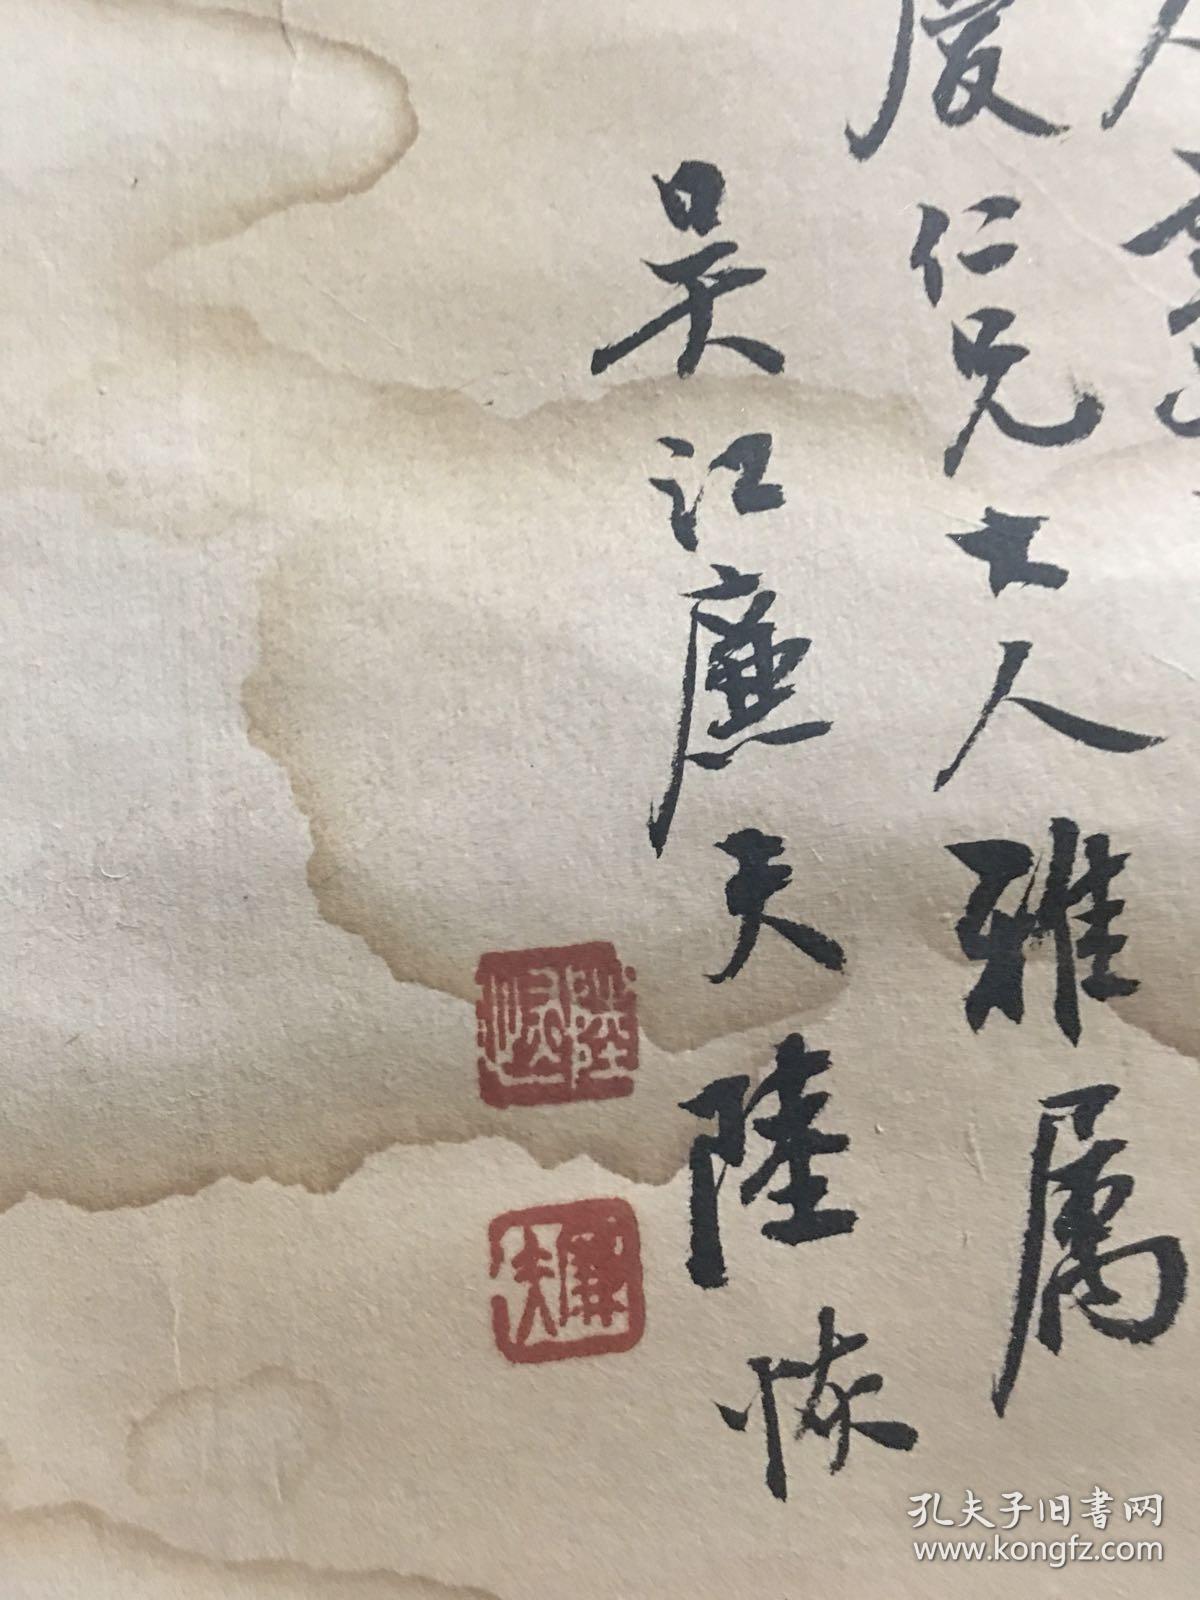 仁兄大人雅属
吴江廉夫陸恢
陸恢
廉夫
孔夫子旧书网
www.kongfz.com